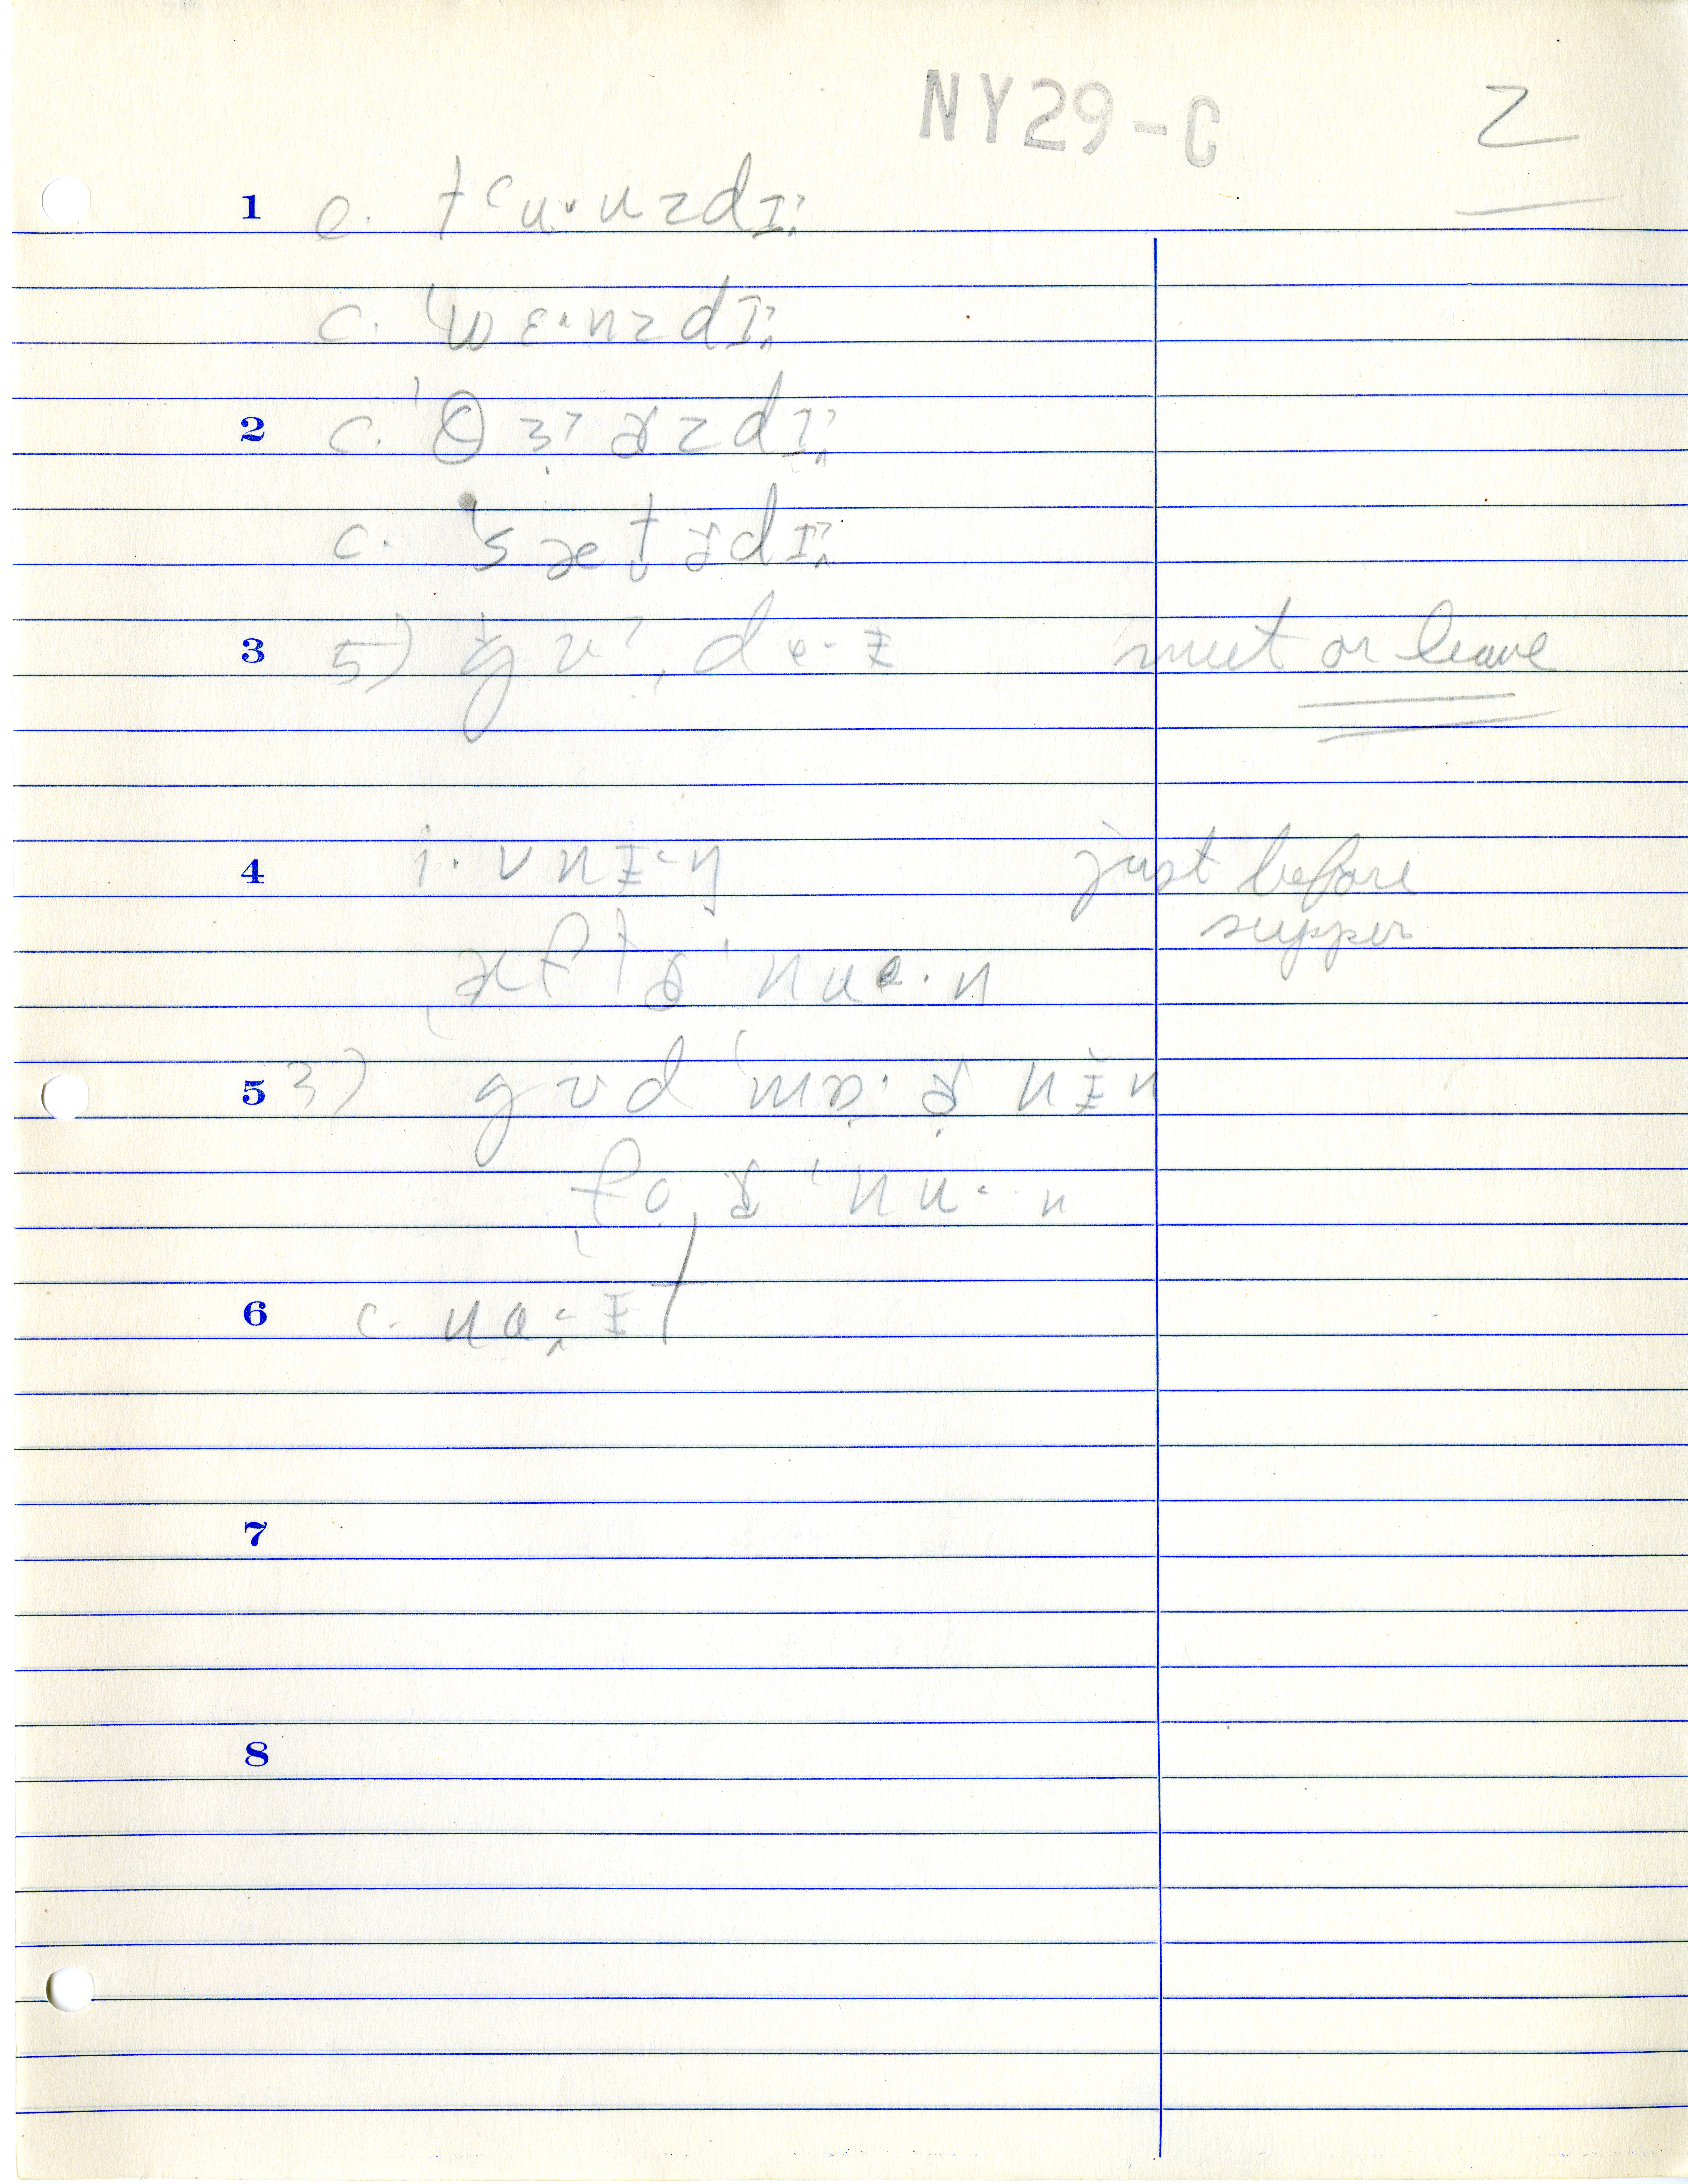 NY29-C 2
1 c. tʿu·ᵛnzdɪ˄
c. ˈwɛ·nzdɪ˄
2 c. ˈθɜ˒ɚzdɪ˄
c. ˈsætɚdɪ˄
3 5) gʊˀˌde·ɨ meet or leave
4 i·vnɨ·ŋ just before
supper
ˌæftɚˈnuə·n
5 3) gʊdˈmɒ·ɚnɨn
ˌfoɚˈnu·n
6 c. nɑ·˄ɨt
7
8